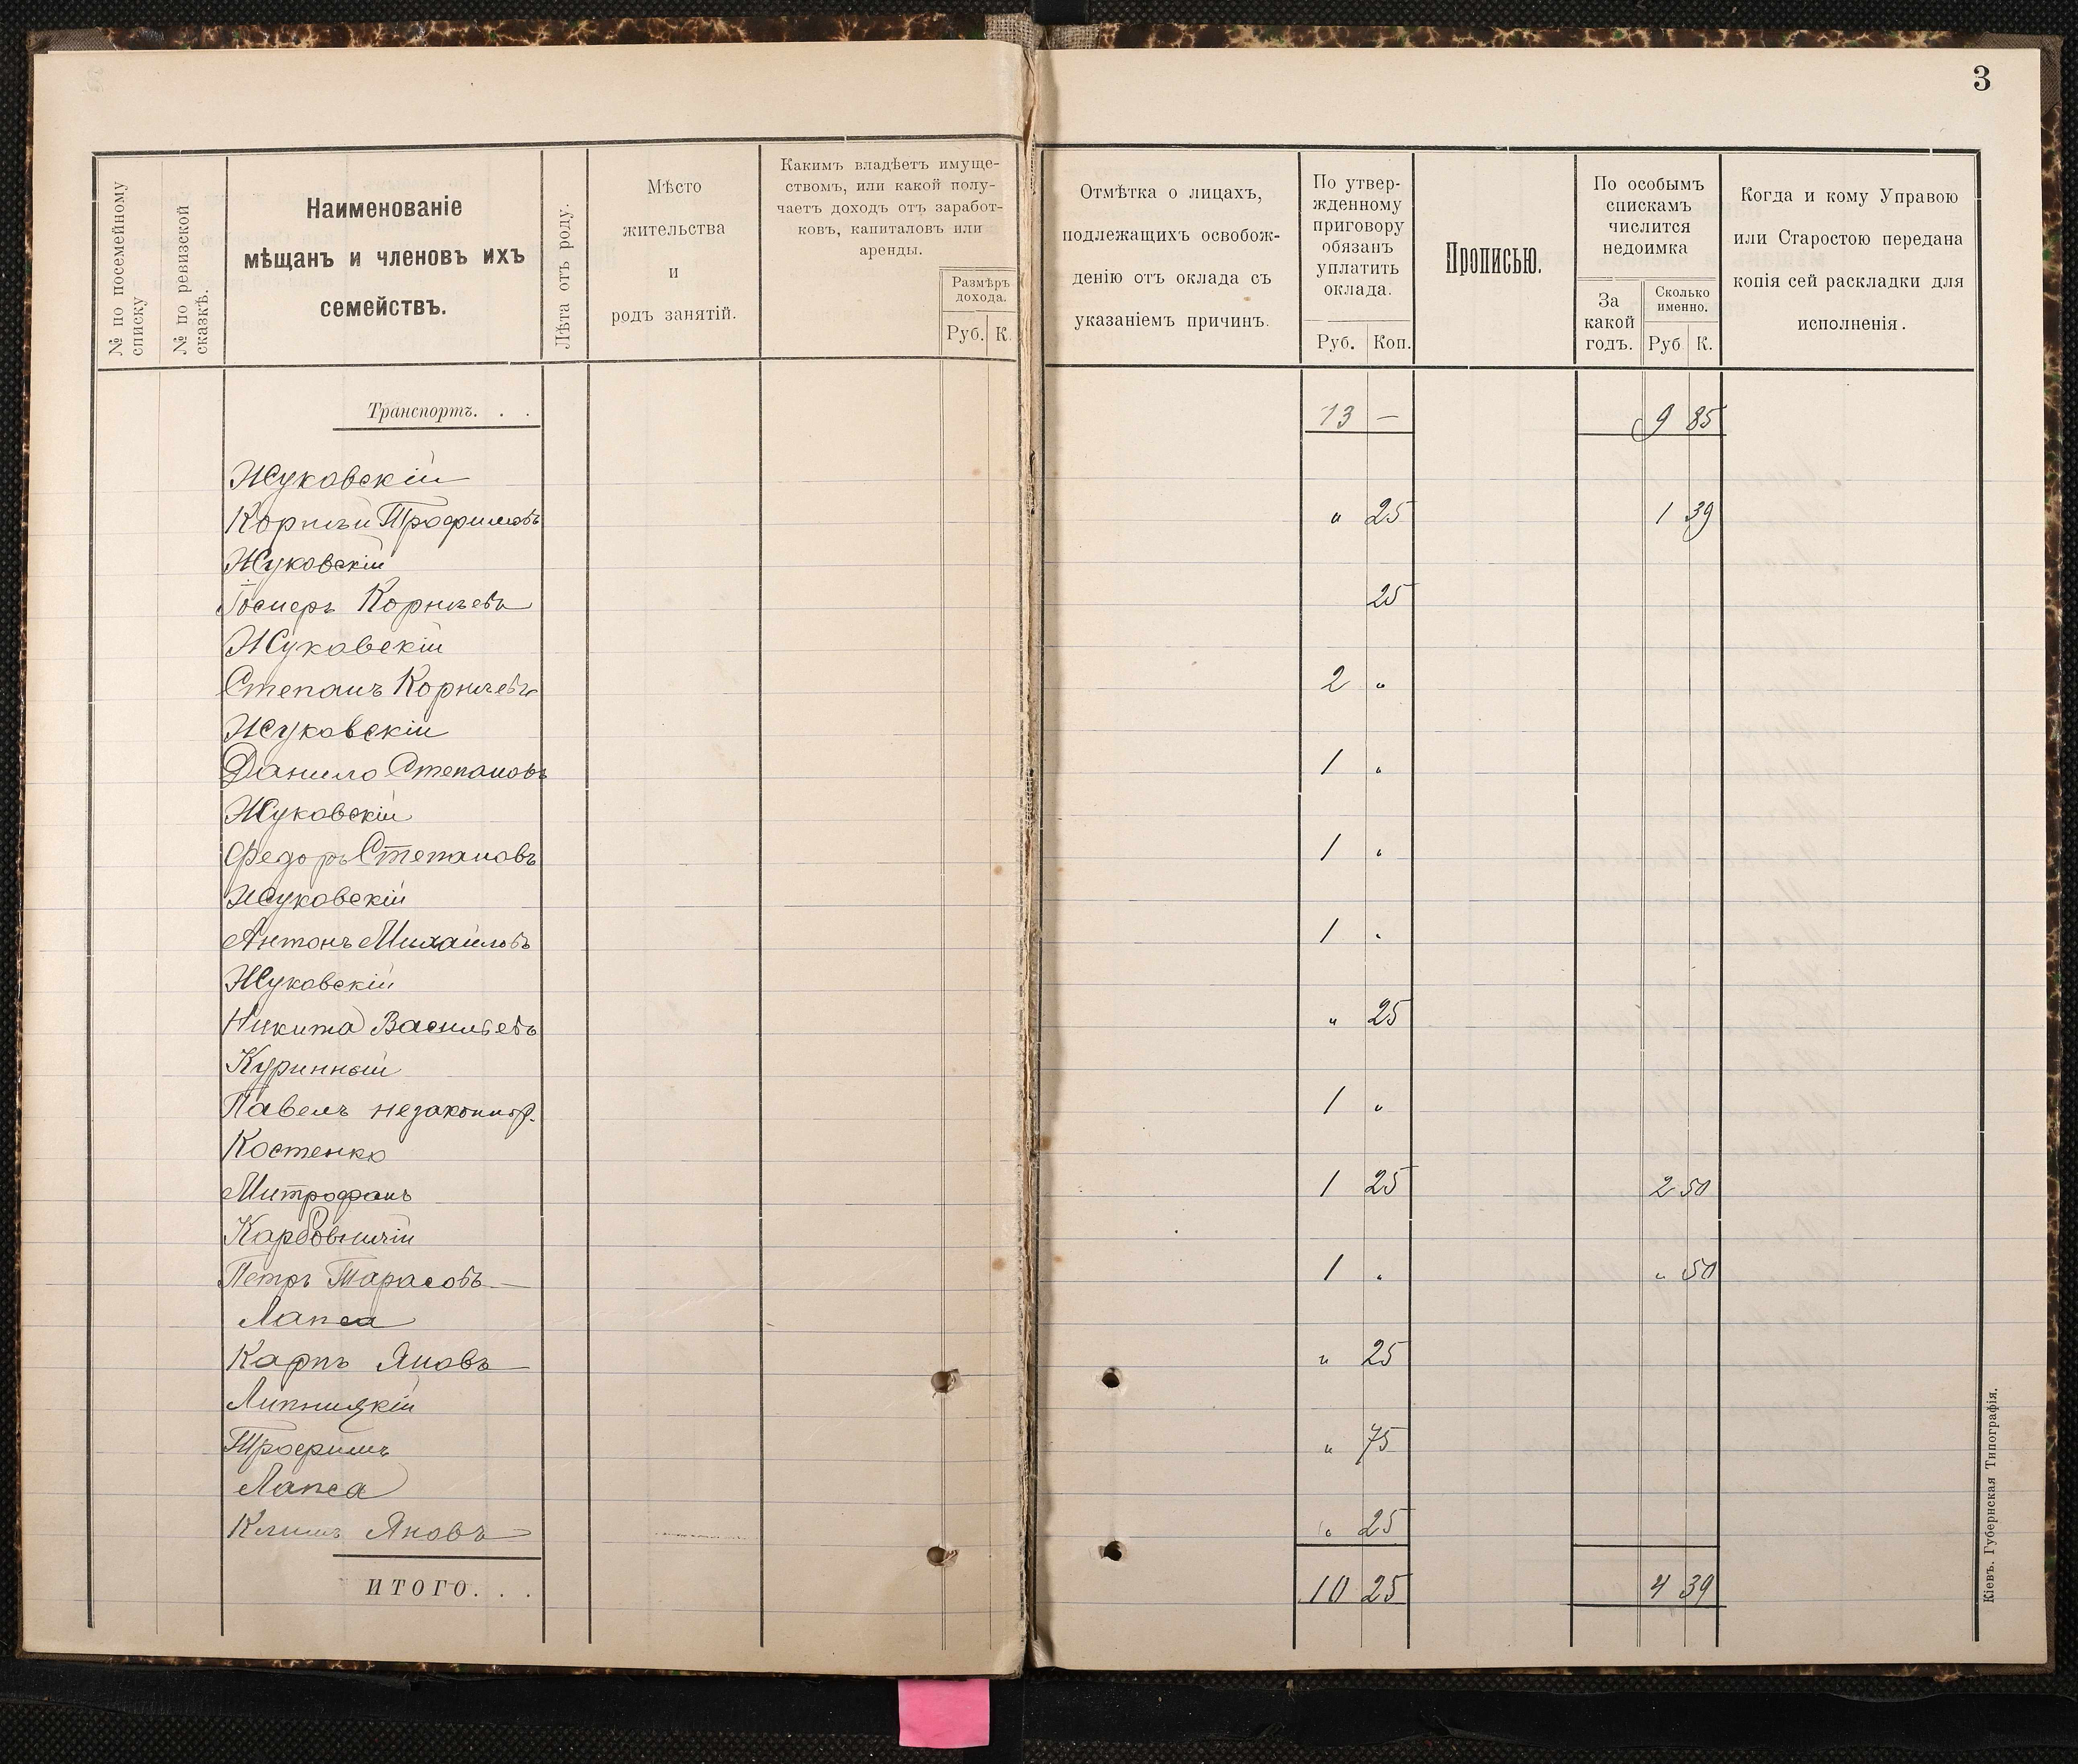 3
№ по посемейному списку
№ по ревизской сказкѣ.
Наименованіе
мѣщанъ и членовъ ихъ
семействъ.
Лѣта отъ роду.
Мѣсто
жительства
и
родъ занятій.
Какимъ владѣетъ имуще-
ствомъ, или какой полу-
чаетъ доходъ отъ заработ-
ковъ, капиталовъ или
аренды.
Размѣръ
дохода.
Руб. К.
Отмѣтка о лицахъ,
подлежащихъ освобож-
денію отъ оклада съ
указаніемъ причинъ.
По утвер-
жденному
приговору
обязанъ
уплатить
оклада.
Руб. Коп.
Прописью.
По особымъ
спискамъ
числится
недоимка
За
какой
годъ.
Сколько
именно.
Руб К.
Когда и кому Управою
или Старостою передана
копія сей раскладки для
исполненія.
Транспортъ. . . 13 — 9 85
Жуковскій
Корнѣй Трофимовъ " 25 1 39
Жуковскій
Корнѣевъ 25
Жуковскій
Степанъ Корнѣевъ 2 "
Жуковскій
Данило Степановъ 1 "
Жуковскій
Федоръ Степановъ 1 "
Жуковскій
Антонъ Михайловъ 1 "
Жуковскій
Никита Васильевъ " 25
Куринный
Павелъ незаконнор. 1 "
Костенко
Митрофанъ 1 25 2 50
Карбовничій
Петръ Тарасовъ 1 " " 50
Лапса
Карпъ Яновъ " 25
Липницкій
Трофимъ " 75
Лапса
Климъ Яновъ " 25
ИТОГО. . . 10 25 4 39
Кіевъ. Губернская Типографія.